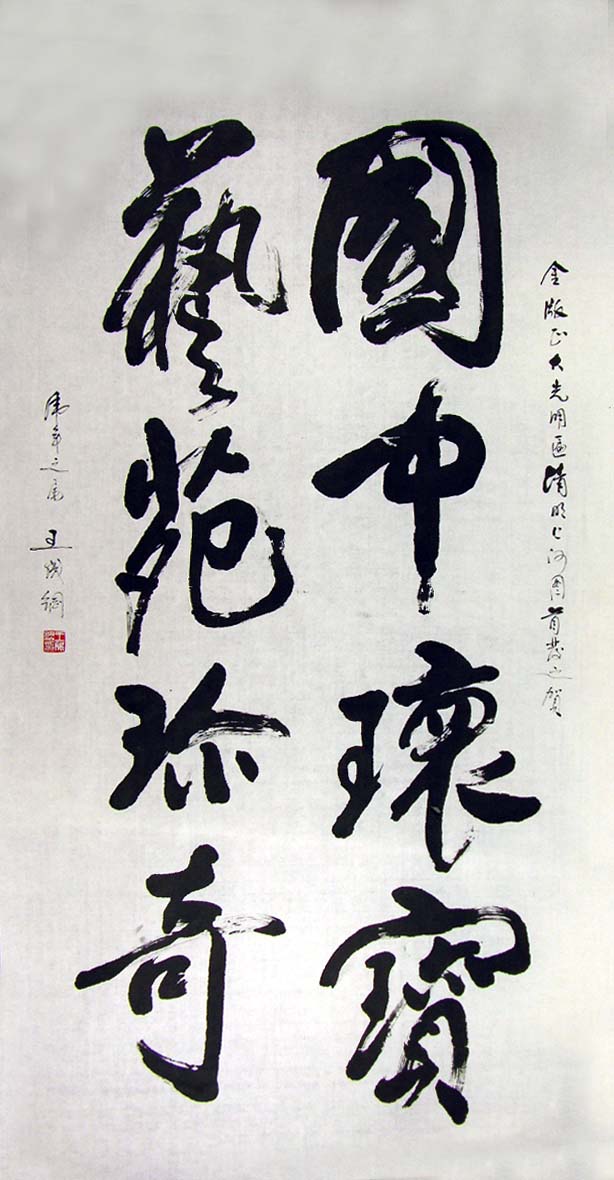 金版正大光明匾清明上河圖首發之賀
國中瓌寶
藝苑珍奇
虎年之尾 王成綱